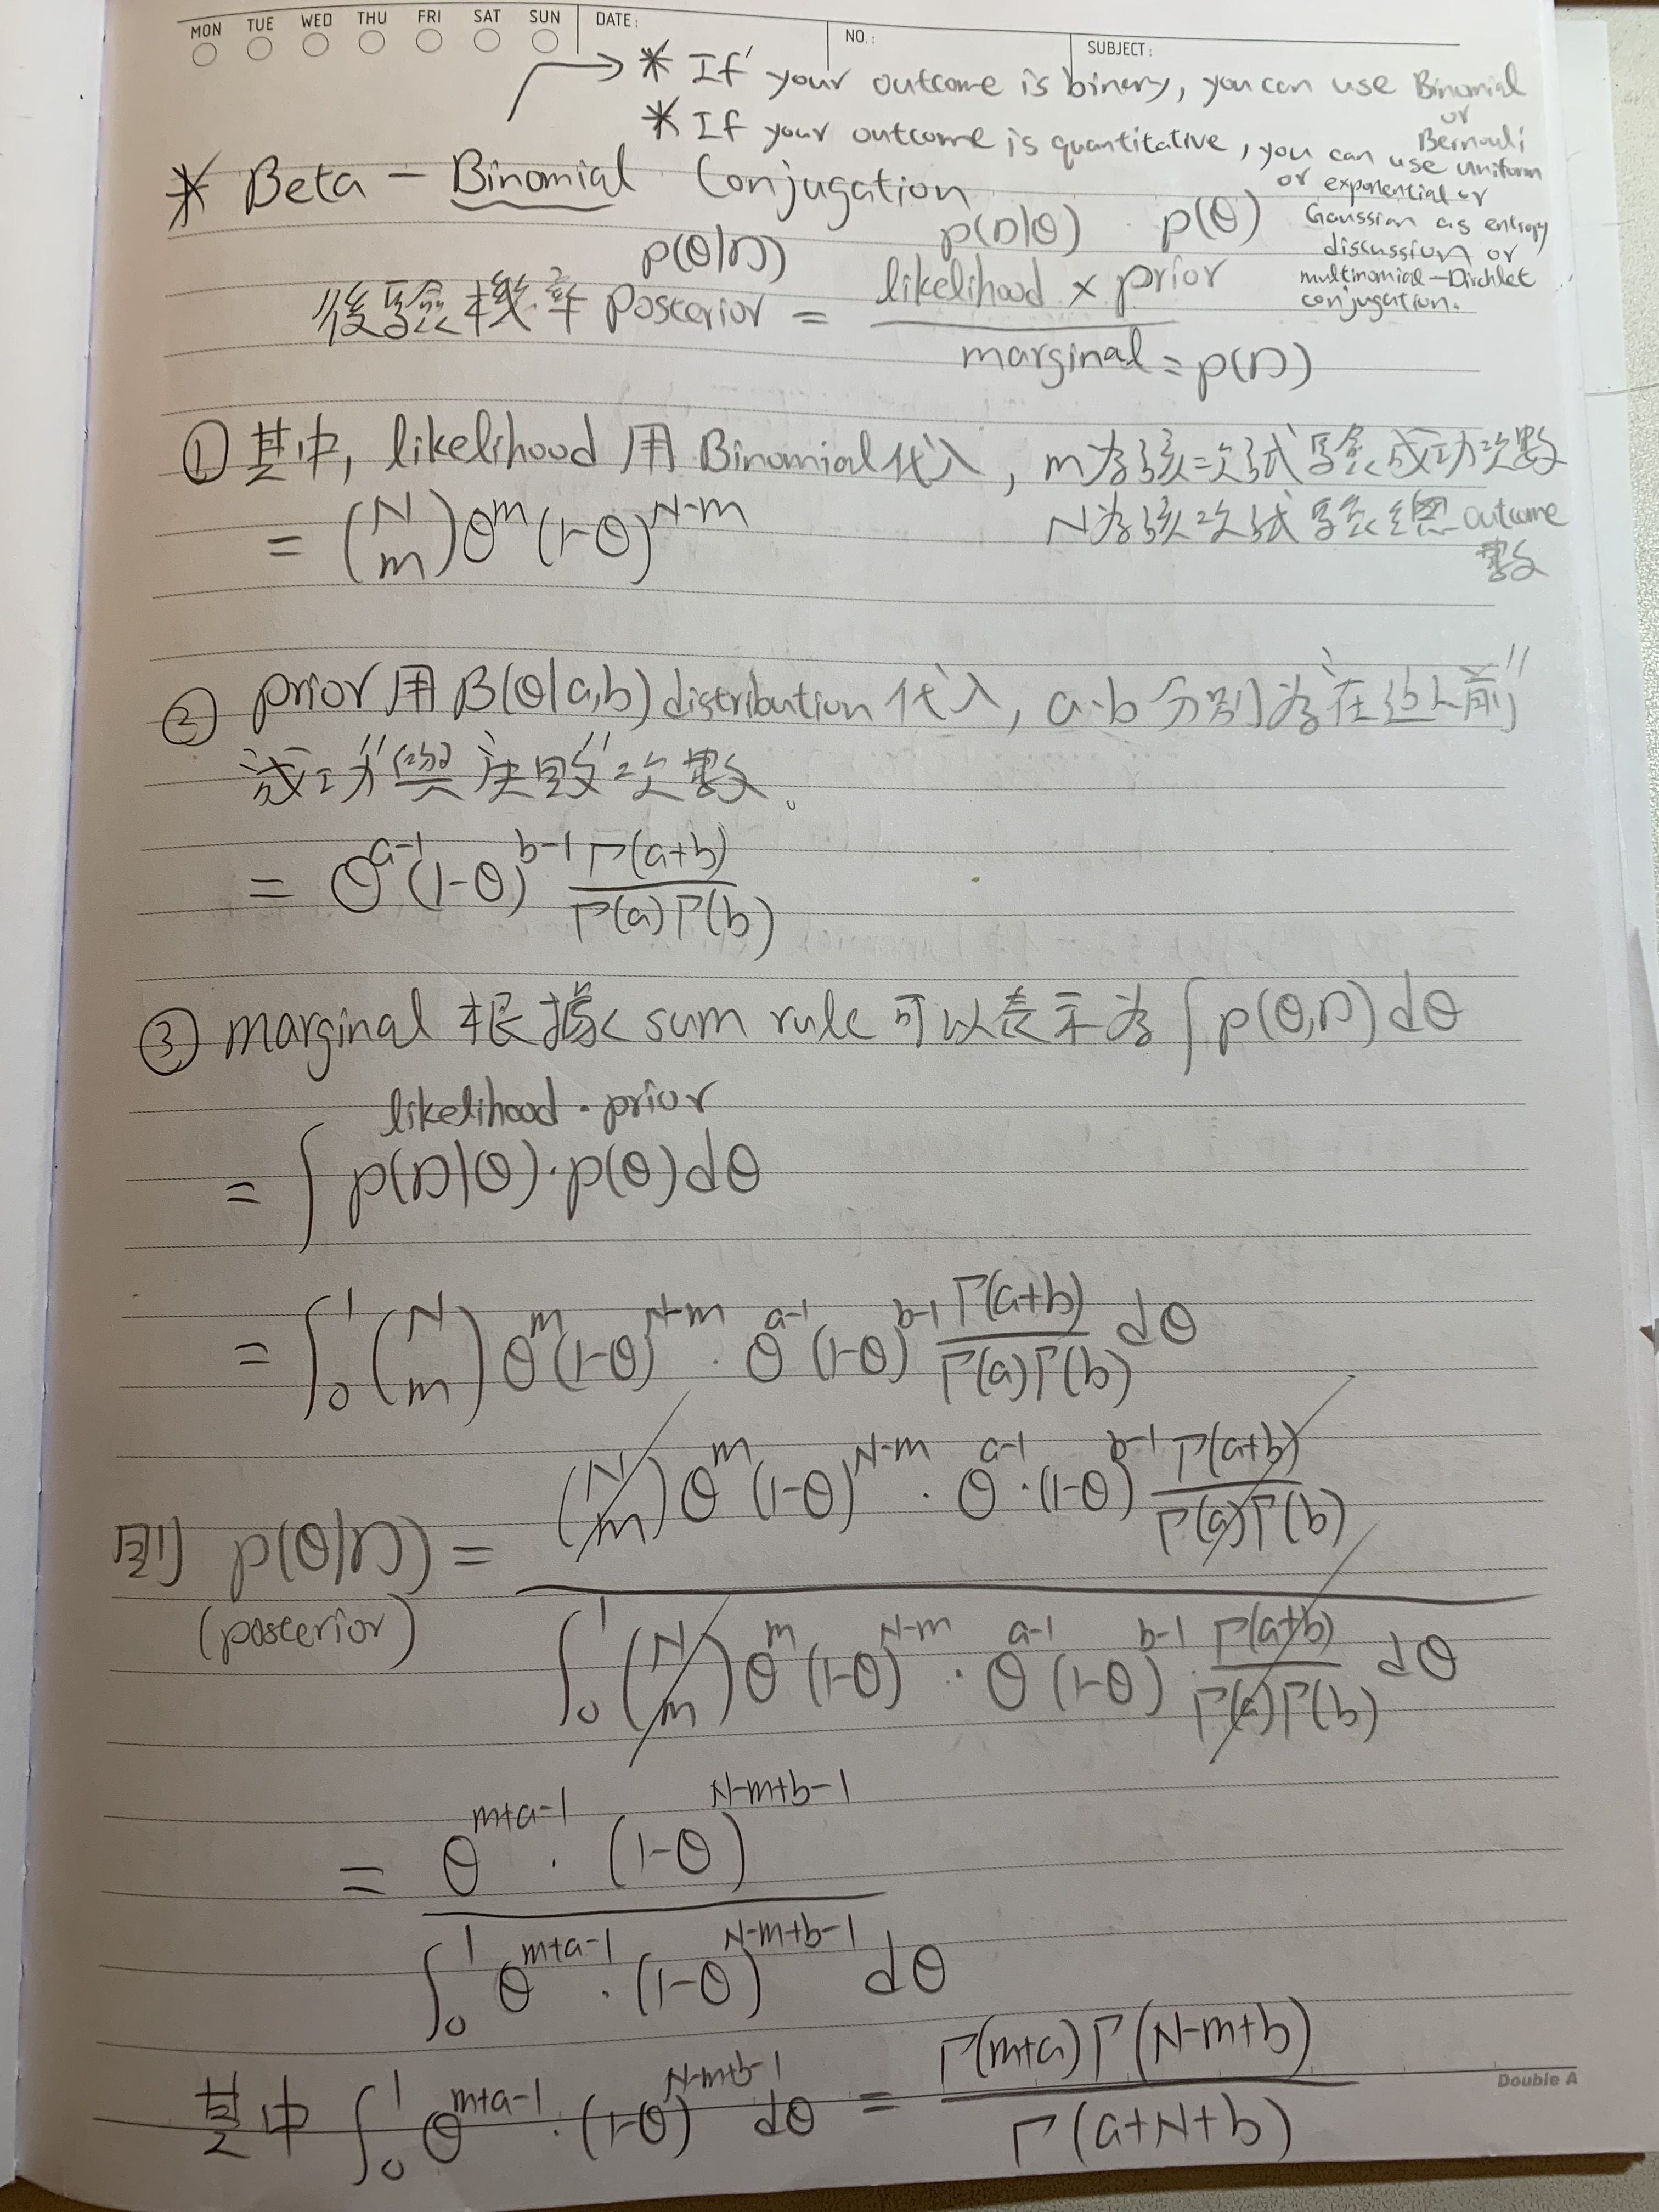 MON TUE WED THU FRI SAT SUN DATE: NO.: SUBJECT:
* If your outcome is binary, you can use Binomial
or
Bernouli
* If your outcome is quantitative, you can use uniform
or exponential or
Gaussian as entropy
discussion or
multinomial-Dirchlet
conjugation.
* Beta - Binomial Conjugation
p(θ|D) p(D|θ) · p(θ)
後驗機率 Posterior = likelihood × prior / marginal = p(D)
① 其中, likelihood 用 Binomial 代入, m為該次試驗成功次數
N為該次試驗總 outcome
數
= (N m) θ^m (1-θ)^{N-m}
② prior 用 B(θ|a,b) distribution 代入, a、b 分別為在"之前"
成功"與"失敗"次數。
= θ^{a-1} (1-θ)^{b-1} Γ(a+b) / Γ(a)Γ(b)
③ marginal 根據 sum rule 可以表示為 ∫ p(θ,D) dθ
likelihood · prior
= ∫ p(D|θ) · p(θ) dθ
= ∫_0^1 (N m) θ^m (1-θ)^{N-m} · θ^{a-1} (1-θ)^{b-1} Γ(a+b) / Γ(a)Γ(b) dθ
則 p(θ|D) = (N m) θ^m (1-θ)^{N-m} · θ^{a-1} · (1-θ)^{b-1} Γ(a+b) / Γ(a)Γ(b)
(posterior)
∫_0^1 (N m) θ^m (1-θ)^{N-m} · θ^{a-1} (1-θ)^{b-1} · Γ(a+b) / Γ(a)Γ(b) dθ
= θ^{m+a-1} · (1-θ)^{N-m+b-1}
∫_0^1 θ^{m+a-1} · (1-θ)^{N-m+b-1} dθ
其中 ∫_0^1 θ^{m+a-1} · (1-θ)^{N-m+b-1} dθ = Γ(m+a)Γ(N-m+b) / Γ(a+N+b)
Double A